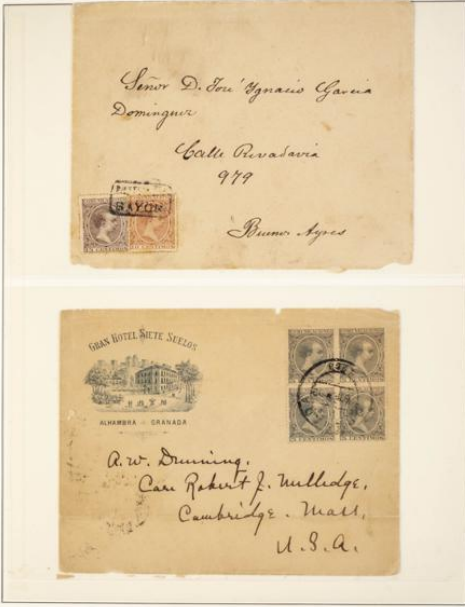 Señor D. José Ygnacio Garcia
Dominguez
Calle Rivadavia
979
Buenos Ayres
BAYON
CENTIMOS
CENTIMOS
GRAN HOTEL SIETE SUELOS
ALHAMBRA GRANADA
CENTIMOS
CENTIMOS
A. W. Dunning,
Care Robert J. Mellidge,
Cambridge. Mass,
U.S.A.